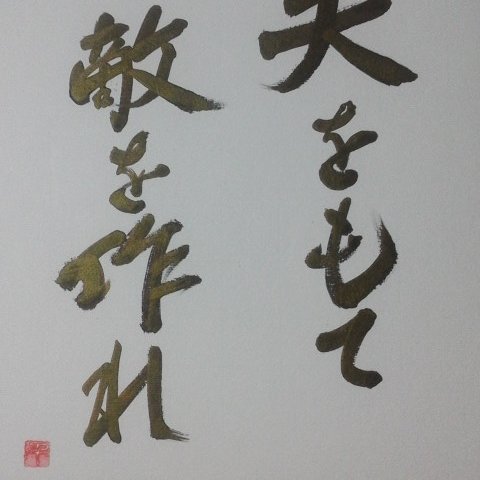 をもて
敵を作れ